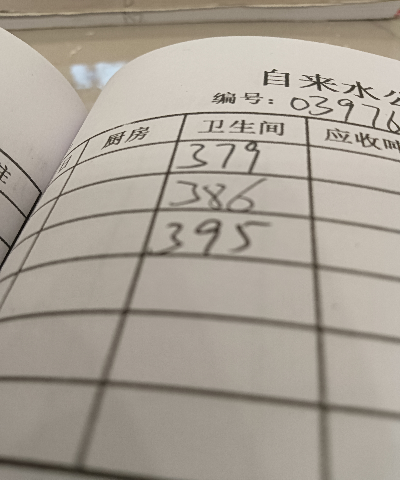 自来水公
编号: 03976
厨房 卫生间 应收
379
386
395